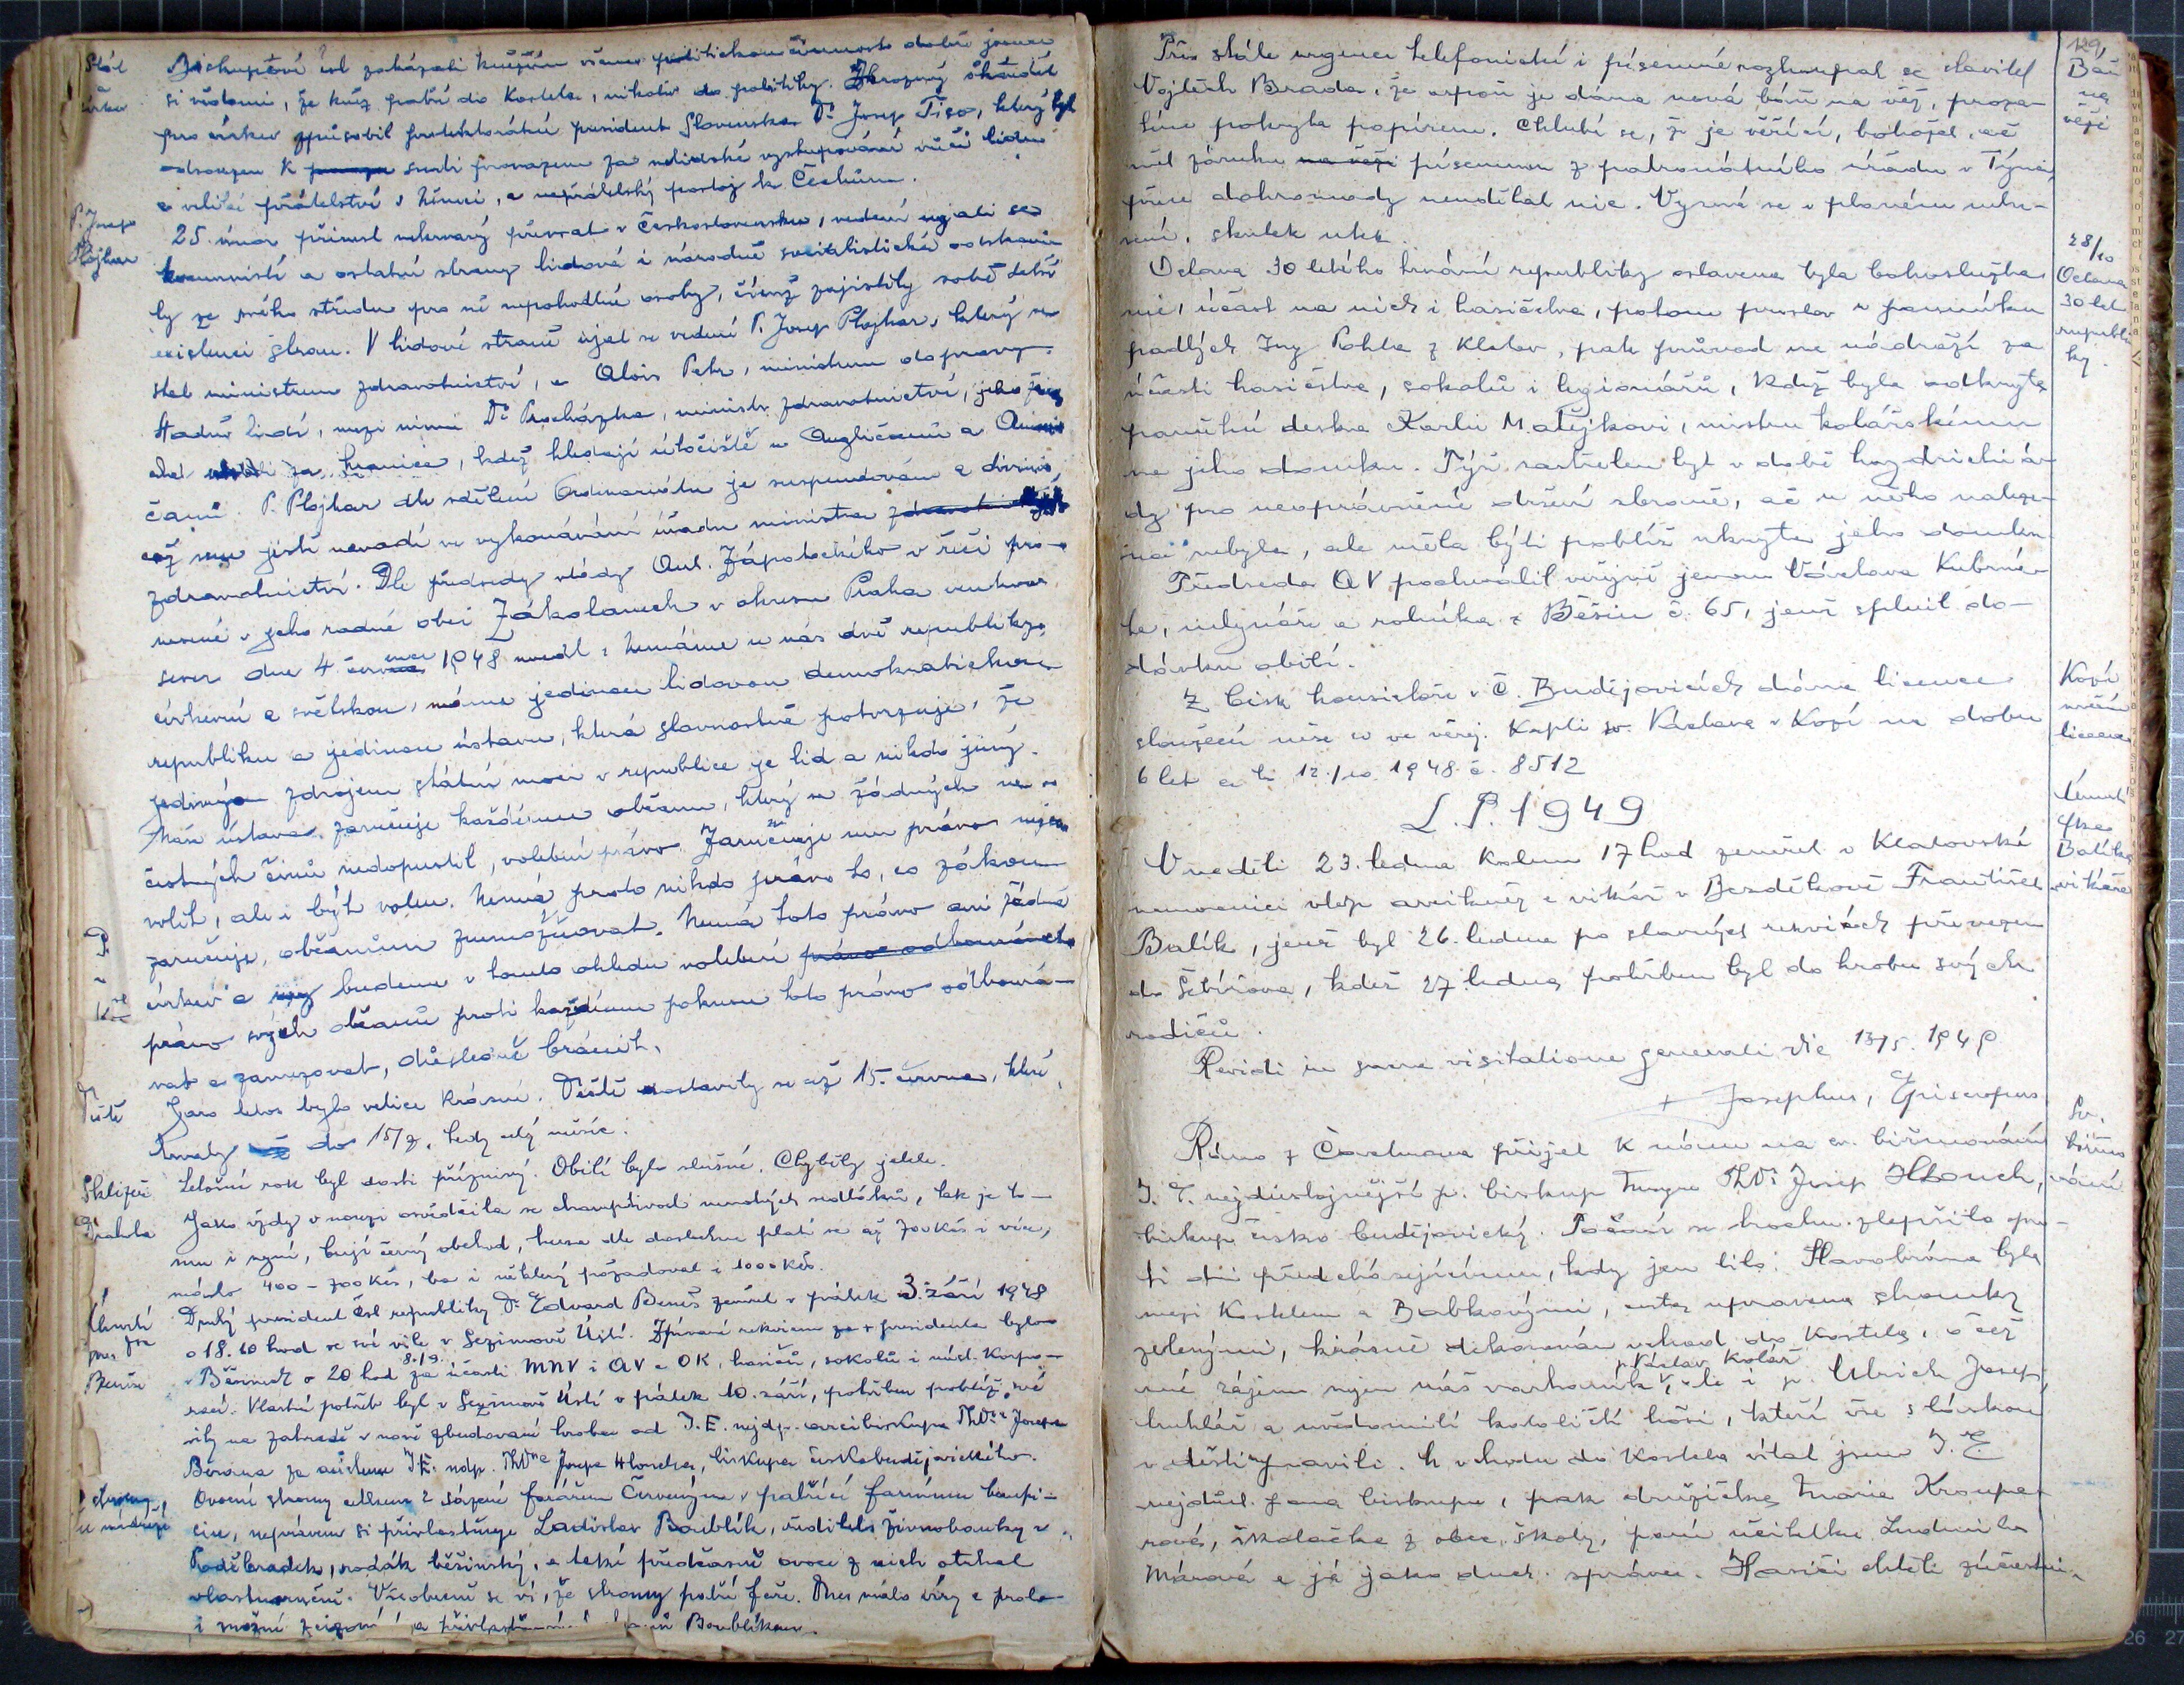 Stát
církev
Biskupství čsl zakázali kněžím všemi politickou činnost dobře jsouce
si vědomi, že kněz patří do kostela, nikoliv do politiky. Ohromný škandál
pro církev způsobil protektorátní president Slovenska Dr Josef Tiso, který byl
odsouzen k smrti provazem za nelidské vystupování vůči lidu
a veliké přátelství s Němci, a nepřátelský postoj k Čechům.
P. Josef
Plojhar
25. únor přinesl nekrvavý převrat v Československu, vedení ujali se
komunisté a ostatní strany lidová i národně socialistická odstranily
ly ze svého středu pro ně nepohodlné osoby, čímž zajistily sobě další
existenci stran. V lidové straně ujal se vedení P. Josef Plojhar, který se
stal ministrem zdravotnictví, a Alois Petr, ministrem dopravy.
lidí, mezi nimi Dr Procházka, ministr zdravotnictví,
za hranice, kdež hledají útočiště u Angličanů a
čanů. P. Plojhar dle sdělení Ordinariátu je suspendován a divinis,
což mu jistě nevadí ve vykonávání úřadu ministra
zdravotnictví. Dle předsedy vlády Ant. Zápotockého v řeči pro-
nesené v jeho rodné obci Zákolanech v okresu Praha venkov
sever dne 4. července 1948 uvedl: Nemáme u nás dvě republiky,
církevní a světskou, máme jedinou lidovou demokratickou
republiku a jedinou ústavu, která slavnostně potvrzuje, že
jediným zdrojem státní moci v republice je lid a nikdo jiný.
Naše ústava zaručuje každému občanu, který se žádných ne-
čestných činů nedopustil, volební právo. Zaručuje mu právo nejen
volit, ale i být volen. Nemá proto nikdo právo to, co zákon
zaručuje, občanům znemožňovat. Nemá toto právo ani žádná
církev a my budeme v tomto ohledu volební právo odbourávat
právo svých občanů proti každému pokusu toto právo odbourá-
vat a zamezovat, důsledně bránit.
Deště
Jaro letos bylo velice krásné. Deště dostavily se až 15. června, které
trvaly do 15/7, tedy celý měsíc.
Sklizeň
Letošní rok byl dosti příznivý. Obilí bylo slušné. Chyběly jetele.
Drahota
Jako vždy v nouzi osvědčila se chamtivost mnohých sedláků, tak je to-
mu i nyní, bují černý obchod, husa dle doslechu platí se až 700 Kčs i více,
máslo 400 – 700 Kčs, ba i některý požadoval i 1000 Kčs.
Úmrtí
pres
Beneše
Druhý president čsl republiky Dr Edvard Beneš zemřel v pátek 3. září 1948
o 18.10 hod ve své vile v Sezimově Ústí. Zpívané rekviem za + presidenta bylo
v Běšinech o 20 hod 8./9. za účasti MNV i AV a OK, hasičů, sokolů i míst. korpo-
rací. Vlastní pohřeb byl v Sezimově Ústí v pátek 10. září, pohřben poblíž své
vily na zahradě v nově zbudované hrobce od J. E. nejdp. arcibiskupa ThDra Josefa
Berana za asistence J.E. ndp. ThDra Josefa Hloucha, biskupa českobudějovického.
Stromy
u nádraží
Ovocné stromy sázené farářem Červeným, patřící farnímu benefi-
ciu, neprávem si přivlastňuje Ladislav Boublík, ředitel živnobanky v
Poděbradech, rodák běšinský, a také předčasně ovoce z nich otrhal
vlastnoručně. Všeobecně se ví, že stromy patří faře. Dnes málo víry a proto
i možné Boublíkem.
129.
Báň
na
věži
Přes stále urgence telefonické i písemné rozhoupal se stavitel
Vojtěch Brada, že aspoň je dána nová báň na věž, proza-
tím pokryta papírem. Chlubí se, že je věřící, bohužel, ač
měl záruku na věži písemnou z patronátního úřadu v Týnci,
přece dohromady neudělal nic. Vyzná se v planém mlu-
vení, skutek utek.
28/10
Oslava
30 let
republi
ky.
Oslava 30 letého trvání republiky oslavena byla bohoslužba
mi, účast na nich i hasičstva, potom proslov u pomníku
padlých Ing Pohla z Klatov, pak průvod na nádraží za
účasti hasičstva, sokolů i legionářů, kdež byla odkryta
pamětní deska Karlu Matějkovi, mistru kolářskému
na jeho domku. Týž zastřelen byl v době heydrichiá-
dy pro neoprávněné držení zbraně, ač u něho naleze-
na nebyla, ale měla býti poblíž ukryta jeho domku.
Předseda AV pochválil veřejně jenom Václava Kubrne-
ho, mlynáře a rolníka z Běšin č. 65, jenž splnil do-
dávku obilí.
Kozí
mešní
licence
Z bisk konsistoře v Č. Budějovicích dána licence
sloužení mše sv ve věřej. kapli sv. Václava v Kozí na dobu
6 let a to 12./10. 1948 č. 8512
L.P. 1949
Úmrtí
Fra
Balíka
vikáře
V neděli 23. ledna kolem 17 hod zemřel v Klatovské
nemocnici vldp arcikněz a vikář v Bezděkově František
Balík, jenž byl 26. ledna po slavných rekviích převezen
do Štěnova, kdež 27. ledna pohřben byl do hrobu svých
rodičů.
Revidi in sacra visitatione generali die 13/5. 1949
+ Josephus, Episcopus
Sv.
biřmo
vání
Ráno z Čachrova přijel k nám na sv. biřmování
J. E. nejdůstojnější p. biskup Msgre ThDr Josef Hlouch,
biskup česko budějovický. Počasí se trochu zlepšilo opro-
ti dni předcházejícímu, kdy jen lilo. Slavobrána byla
mezi kostelem a Babkovými, cesta upravena stromky
zelenými, krásně dekorován vchod do kostela, o což
má zájem nejen náš varhaník p. Václav Kolář, ale i p. Ulrich Josef,
truhlář a uvědomělí katoličtí hoši, kteří vše s láskou
v dešti upravili. U vchodu do kostela vítal jsem J. E
nejdůst. pana biskupa, pak družička Marie Kroupa-
rová, školačka z obec. školy, paní učitelka Ludmila
Márová a já jako duch. správce. Hasiči chtěli zúčastni-